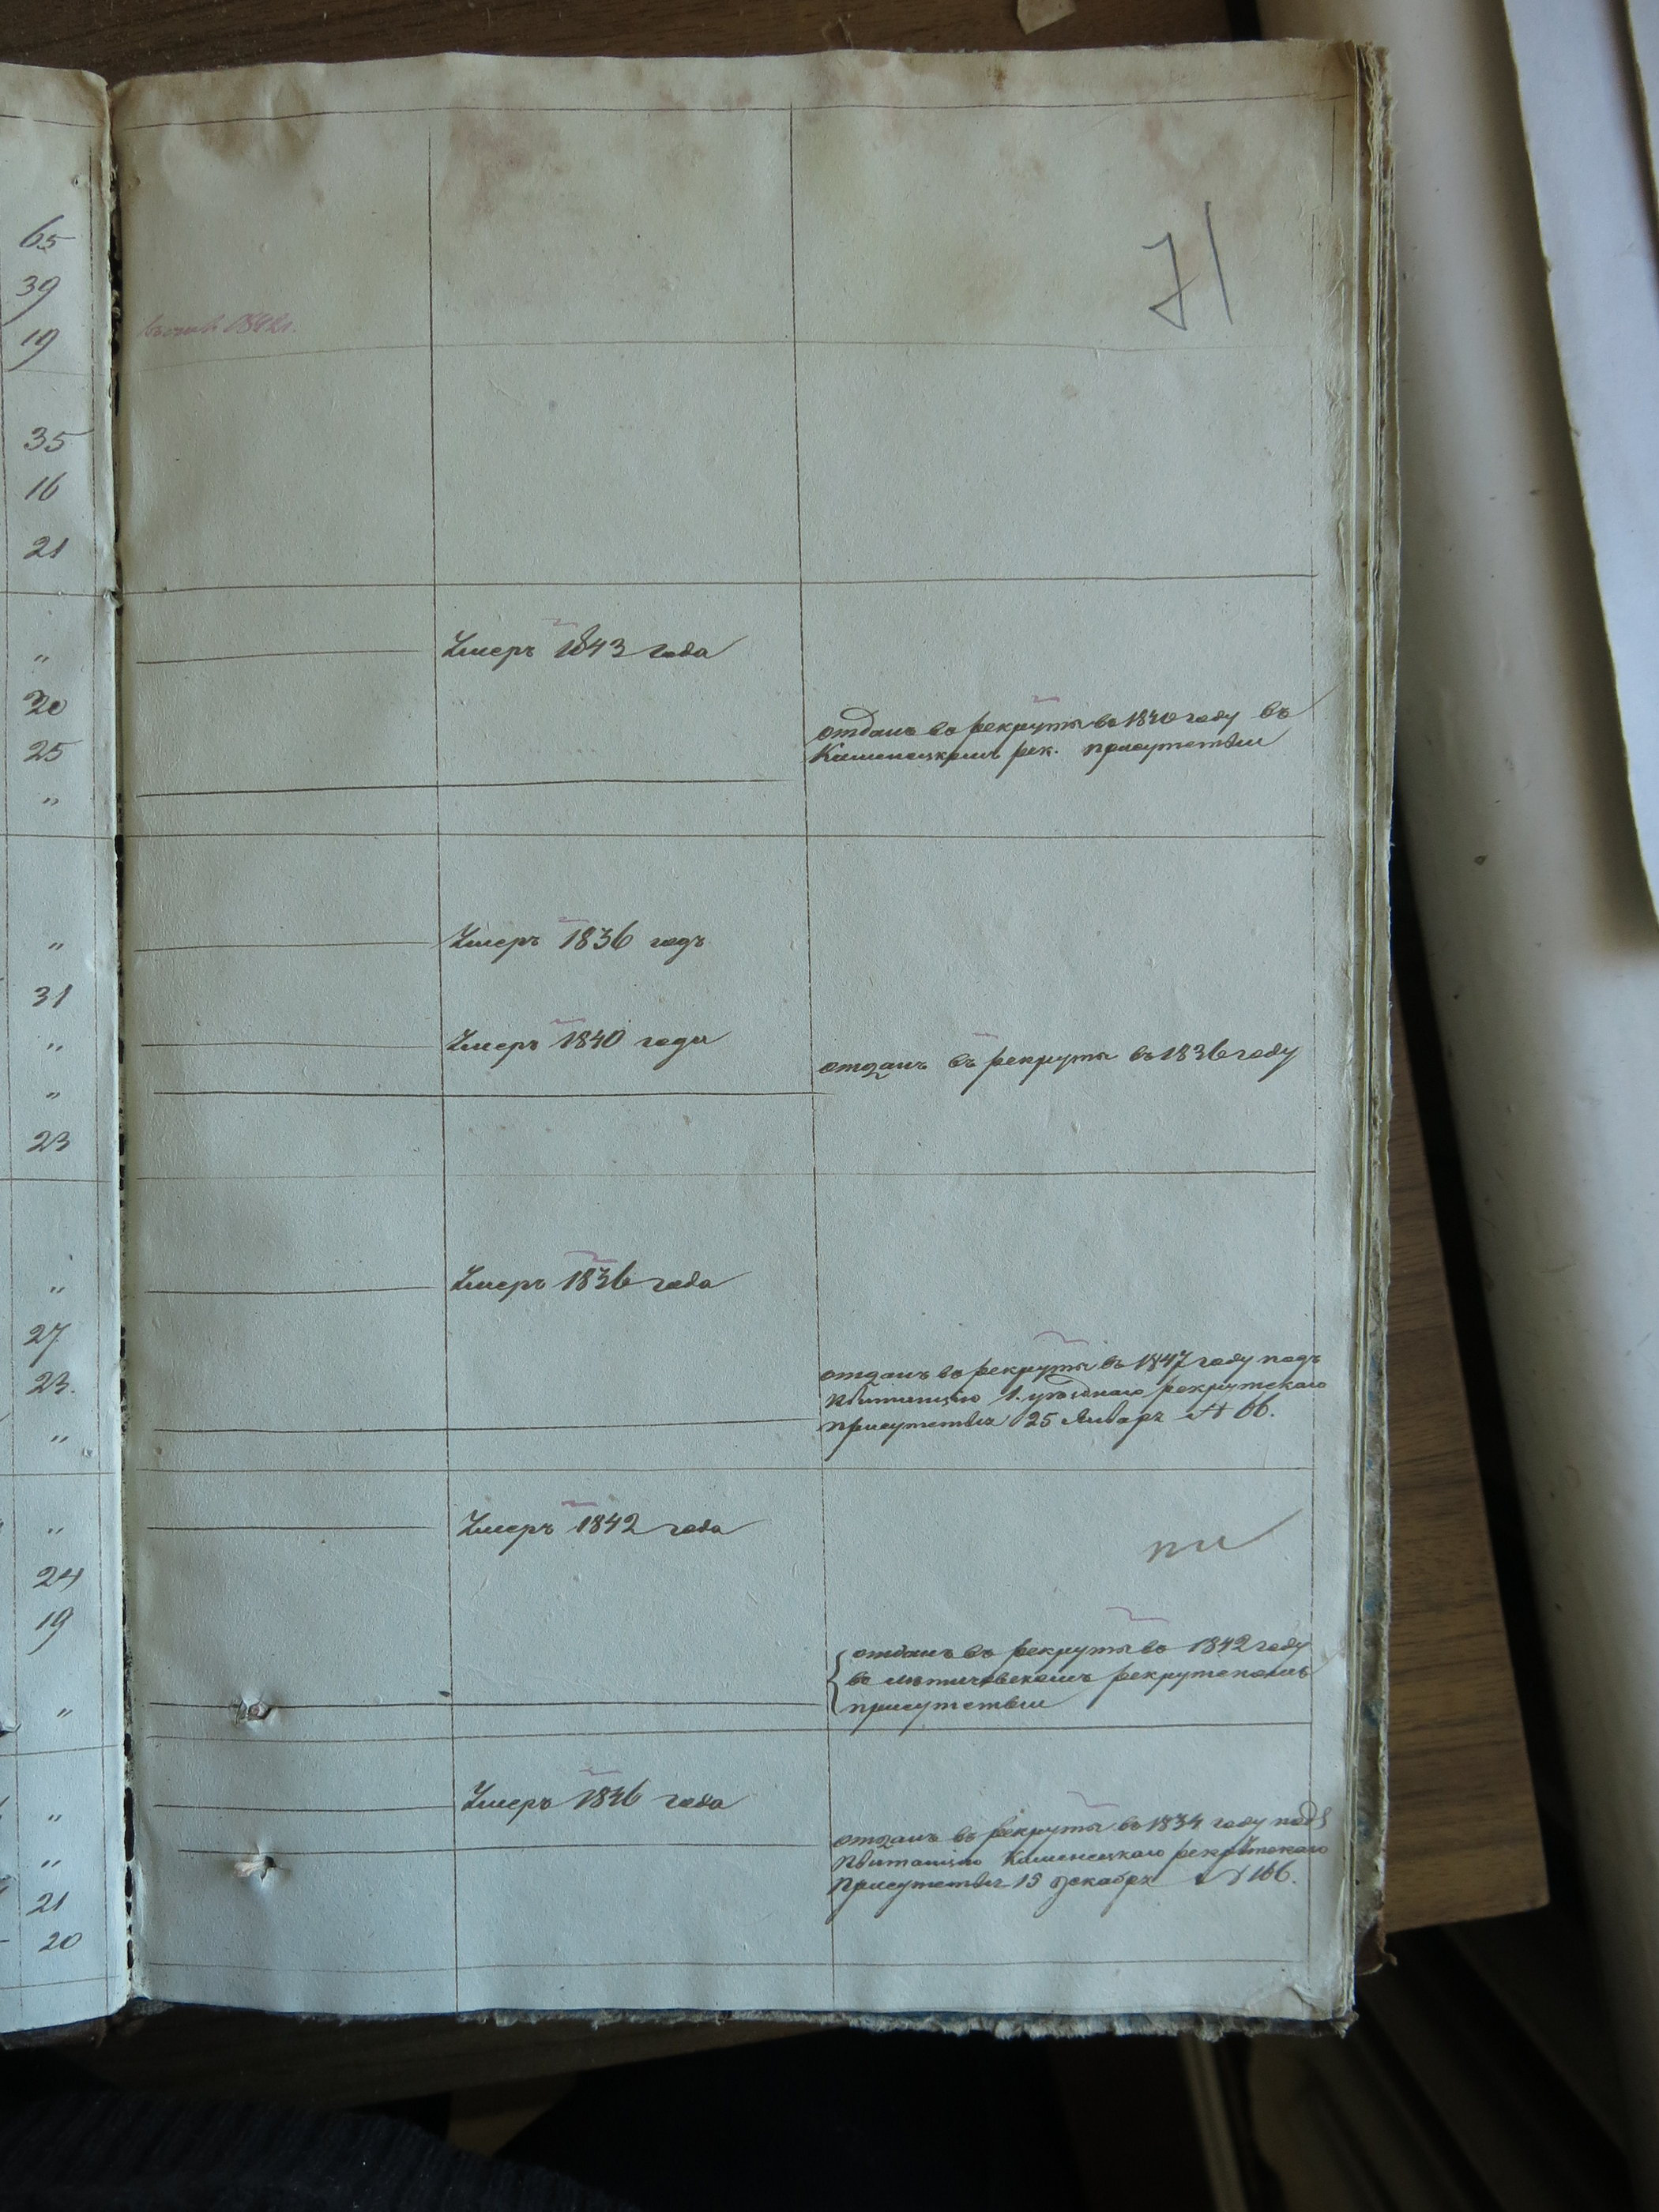 71
65
39
19 1842г.
35
16
21
" Умеръ 1843 года
20 отданъ въ рекруты въ 1840 году въ
25 Каменецкомъ рек. присутствіи
"
" Умеръ 1836 годъ
31
" Умеръ 1840 года
" отданъ въ рекруты въ 1836 году
23
" Умеръ 1836 года
27
23. отданъ въ рекруты въ 1847 году подъ
квитанцію 1. уѣзднаго рекрутскаго
" присутствія 25 Январь № 66.
" Умеръ 1842 года
24
19
отданъ въ рекруты въ 1842 году
въ Летичовскомъ рекрутскомъ
" присутствіи
" Умеръ 1836 года
отданъ въ рекруты въ 1834 году подъ
" квитанцію Каменецкаго рекрутскаго
21 Присутствія 15 декабря № 166.
20